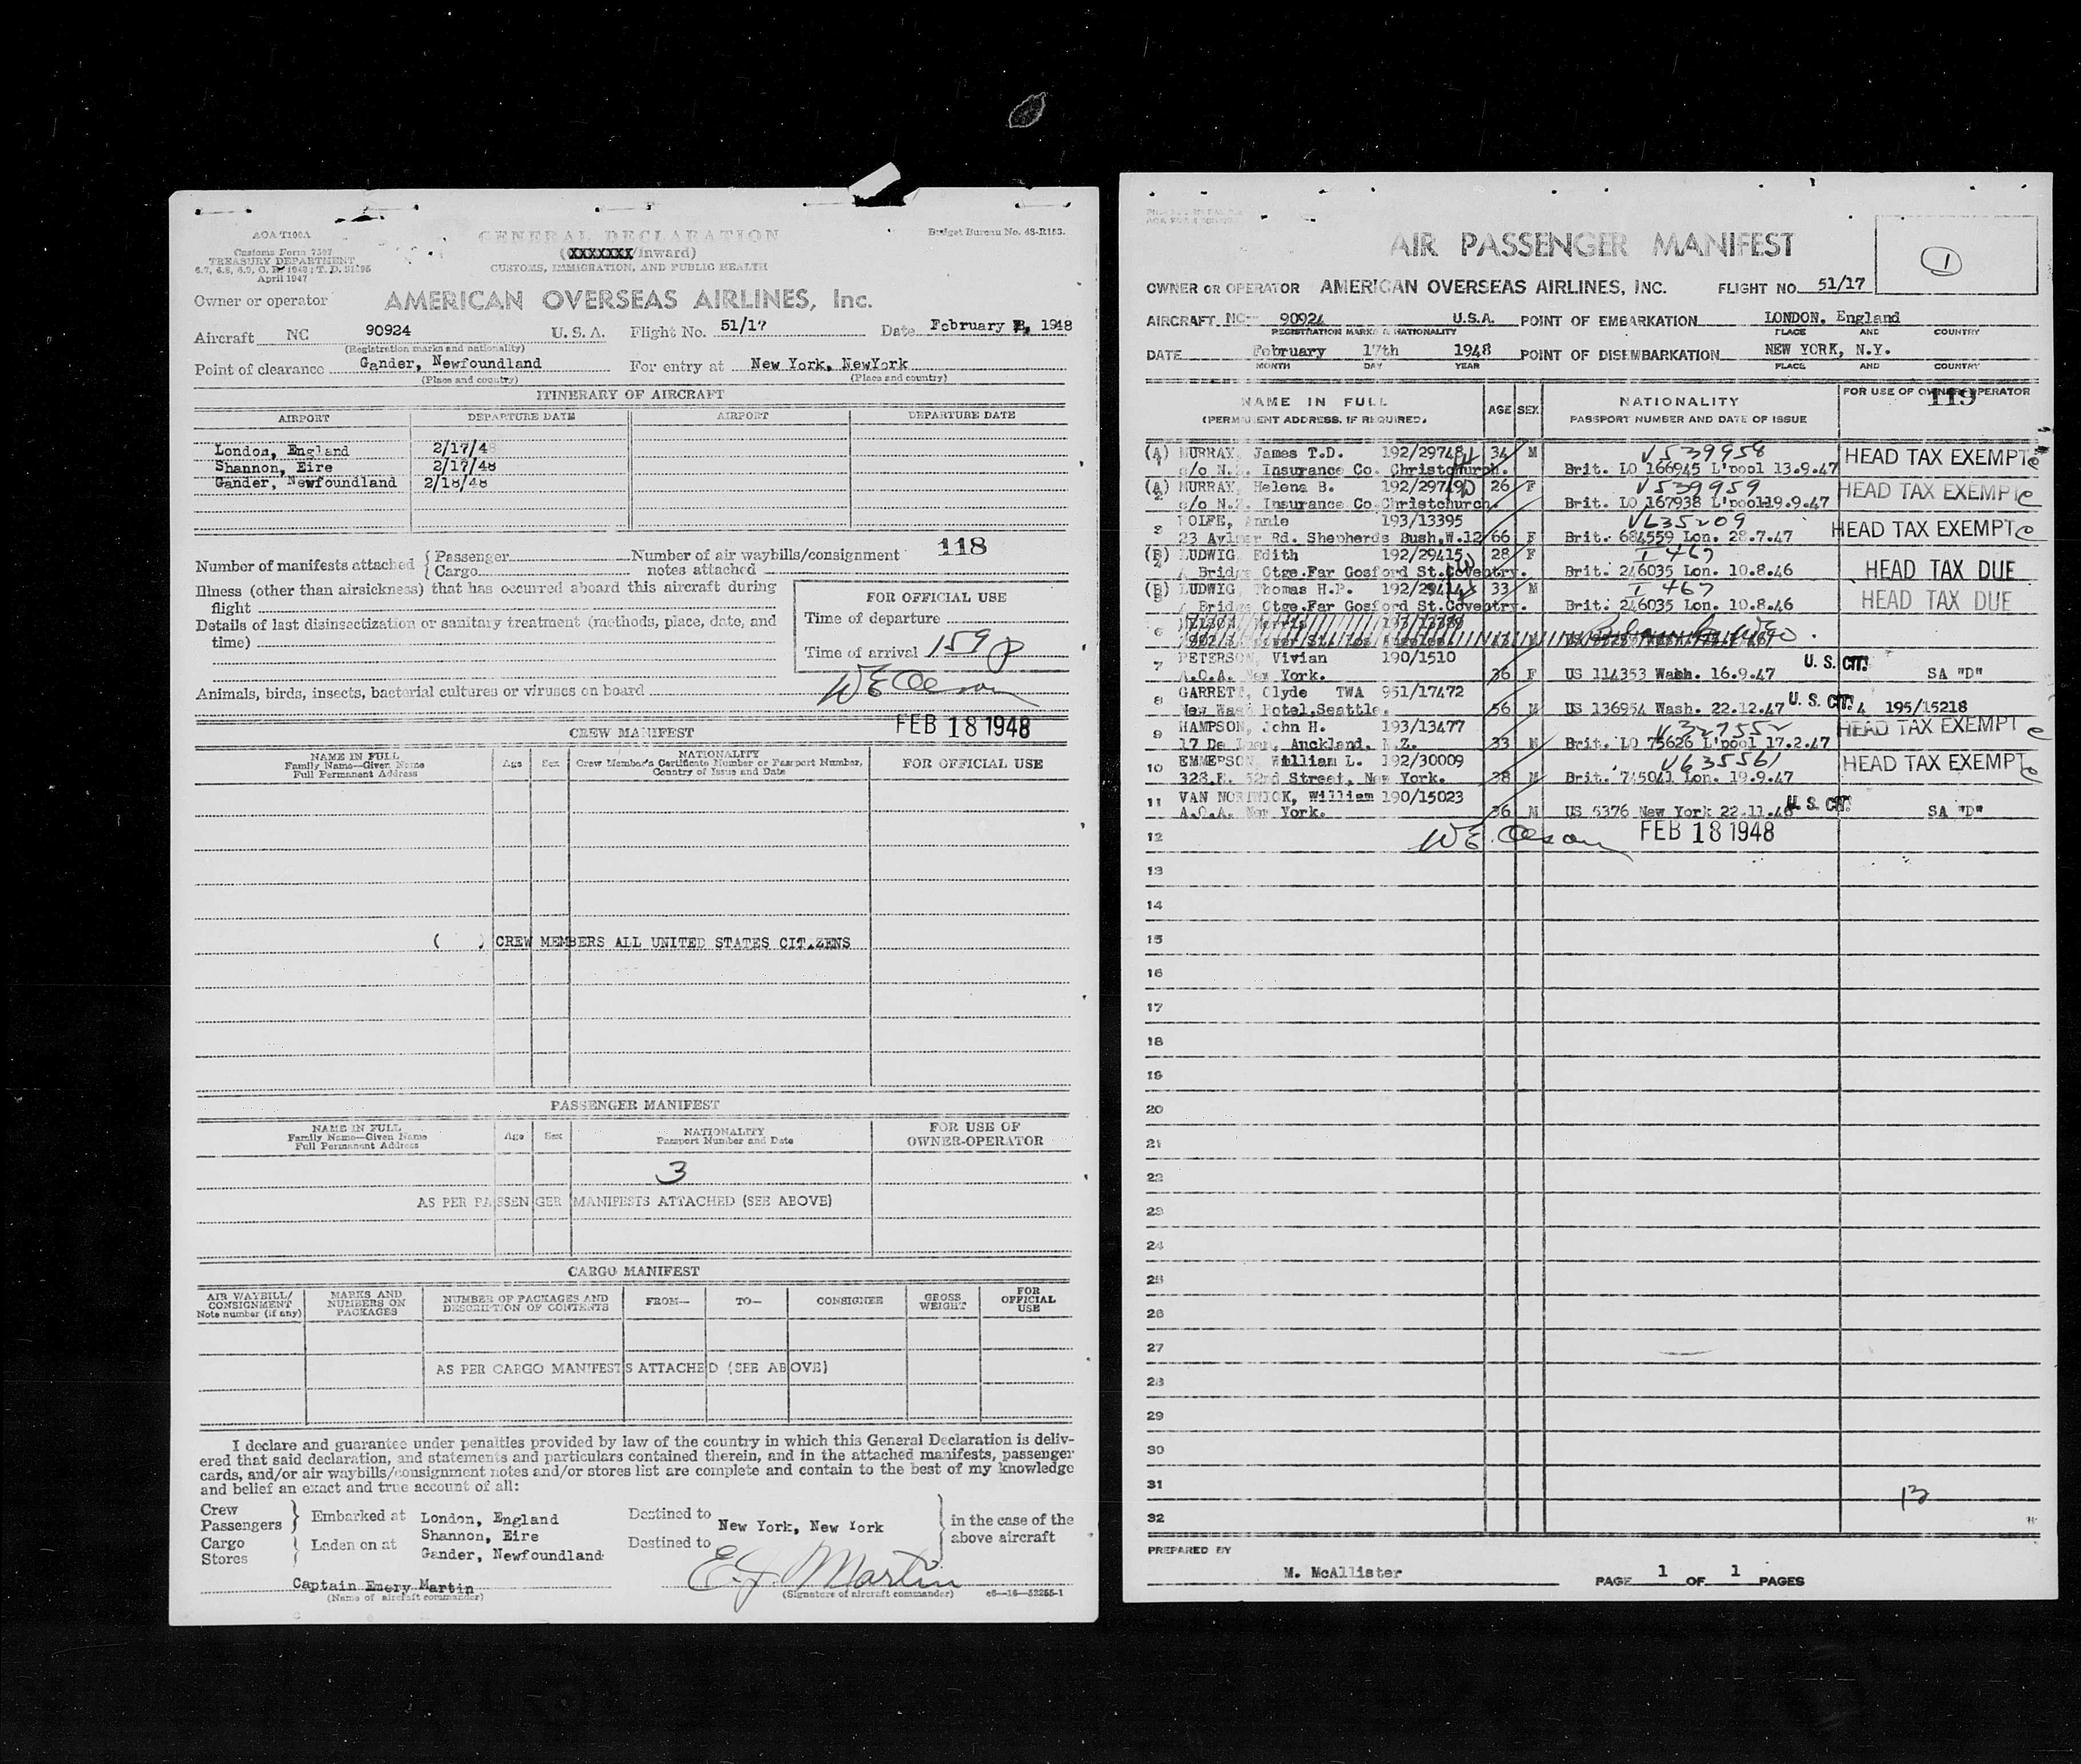 AOA T100A
Customs Form 7507
TREASURY DEPARTMENT
April 1947
GENERAL DECLARATION
(XXXXXXX/inward)
CUSTOMS, IMMIGRATION, AND PUBLIC HEALTH
Budget Bureau No. 48-R153.
Owner or operator AMERICAN OVERSEAS AIRLINES, Inc.
Aircraft NC 90924 U. S. A. Flight No. 51/17 Date February 1948
(Registration marks and nationality)
Point of clearance Gander, Newfoundland For entry at New York, NewYork
(Place and country) (Place and country)
ITINERARY OF AIRCRAFT
AIRPORT DEPARTURE DATE AIRPORT DEPARTURE DATE
London, England 2/17/48
Shannon, Eire 2/17/48
Gander, Newfoundland 2/18/48
Number of manifests attached { Passenger Number of air waybills/consignment 118
Cargo notes attached
Illness (other than airsickness) that has occurred aboard this aircraft during
flight
Details of last disinsectization or sanitary treatment (methods, place, date, and
time)
FOR OFFICIAL USE
Time of departure
Time of arrival 159 p
Animals, birds, insects, bacterial cultures or viruses on board
WE Olson
FEB 18 1948
CREW MANIFEST
NAME IN FULL
Family Name—Given Name
Full Permanent Address
Age Sex
NATIONALITY
Crew Member's Certificate Number or Passport Number,
Country of Issue and Date
FOR OFFICIAL USE
( ) CREW MEMBERS ALL UNITED STATES CITIZENS
PASSENGER MANIFEST
NAME IN FULL
Family Name—Given Name
Full Permanent Address
Age Sex
NATIONALITY
Passport Number and Date
FOR USE OF
OWNER-OPERATOR
3
AS PER PASSENGER MANIFESTS ATTACHED (SEE ABOVE)
CARGO MANIFEST
AIR WAYBILL/
CONSIGNMENT
Note number (if any)
MARKS AND
NUMBERS ON
PACKAGES
NUMBER OF PACKAGES AND
DESCRIPTION OF CONTENTS
FROM— TO— CONSIGNEE
GROSS
WEIGHT
FOR
OFFICIAL
USE
AS PER CARGO MANIFESTS ATTACHED (SEE ABOVE)
I declare and guarantee under penalties provided by law of the country in which this General Declaration is deliv-
ered that said declaration, and statements and particulars contained therein, and in the attached manifests, passenger
cards, and/or air waybills/consignment notes and/or stores list are complete and contain to the best of my knowledge
and belief an exact and true account of all:
Crew
Passengers } Embarked at London, England Destined to New York, New York } in the case of the
Cargo Shannon, Eire above aircraft
Stores } Laden on at Gander, Newfoundland Destined to
Captain Emery Martin E. J. Martin
(Name of aircraft commander) (Signature of aircraft commander) c6—16—52255-1
AIR PASSENGER MANIFEST
1
OWNER OR OPERATOR AMERICAN OVERSEAS AIRLINES, INC. FLIGHT NO. 51/17
AIRCRAFT NC- 90924 U.S.A. POINT OF EMBARKATION LONDON, England
REGISTRATION MARKS & NATIONALITY PLACE AND COUNTRY
DATE February 17th 1948 POINT OF DISEMBARKATION NEW YORK, N.Y.
MONTH DAY YEAR PLACE AND COUNTRY
NAME IN FULL
(PERMANENT ADDRESS, IF REQUIRED)
AGE SEX
NATIONALITY
PASSPORT NUMBER AND DATE OF ISSUE
FOR USE OF OWNER-OPERATOR
119
(A) 1 MURRAY, James T.D. 192/29748 34 M V539958 HEAD TAX EXEMPT
c/o N.Z. Insurance Co. Christchurch. Brit. LO 166945 L'pool 13.9.47
(A) 2 MURRAY, Helena B. 192/29749 26 F V539959 HEAD TAX EXEMPT
c/o N.Z. Insurance Co.Christchurch. Brit. LO 167938 L'pool19.9.47
3 WOIFE, Annie 193/13395 V635209 HEAD TAX EXEMPT
23 Aylmer Rd. Shepherds Bush,W.12 66 F Brit. 684559 Lon. 28.7.47
(B) 4 LUDWIG, Edith 192/29415 28 F I 467 HEAD TAX DUE
Bridge Ctge.Far Gosford St.Coventry. Brit. 246035 Lon. 10.8.46
(B) 5 LUDWIG, Thomas H.P. 192/29414 33 M I 467 HEAD TAX DUE
Bridge Ctge.Far Gosford St.Coventry. Brit. 246035 Lon. 10.8.46
6 193/13389
7 PETERSON, Vivian 190/1510 U. S. CIT.
A.O.A. New York. 36 F US 114353 Wash. 16.9.47 SA "D"
8 GARRETT, Clyde TWA 951/17472 U. S. CIT.
New Wash Hotel,Seattle. 56 M US 136954 Wash. 22.12.47 195/15218
9 HAMPSON, John H. 193/13477 HEAD TAX EXEMPT
17 De Luen, Auckland, N.Z. 33 M Brit. LO 75626 L'pool 17.2.47
10 EMMERSON, William L. 192/30009 V635561 HEAD TAX EXEMPT
328.E. 52nd Street, New York. 38 M Brit. 745041 Lon. 19.9.47
11 VAN NORTWICK, William 190/15023 U. S. CIT.
A.O.A. New York. 36 M US 5376 New York 22.11.46 SA "D"
12 WE. Olson FEB 18 1948
13
14
15
16
17
18
19
20
21
22
23
24
25
26
27
28
29
30
31
32
13
PREPARED BY
M. McAllister PAGE 1 OF 1 PAGES